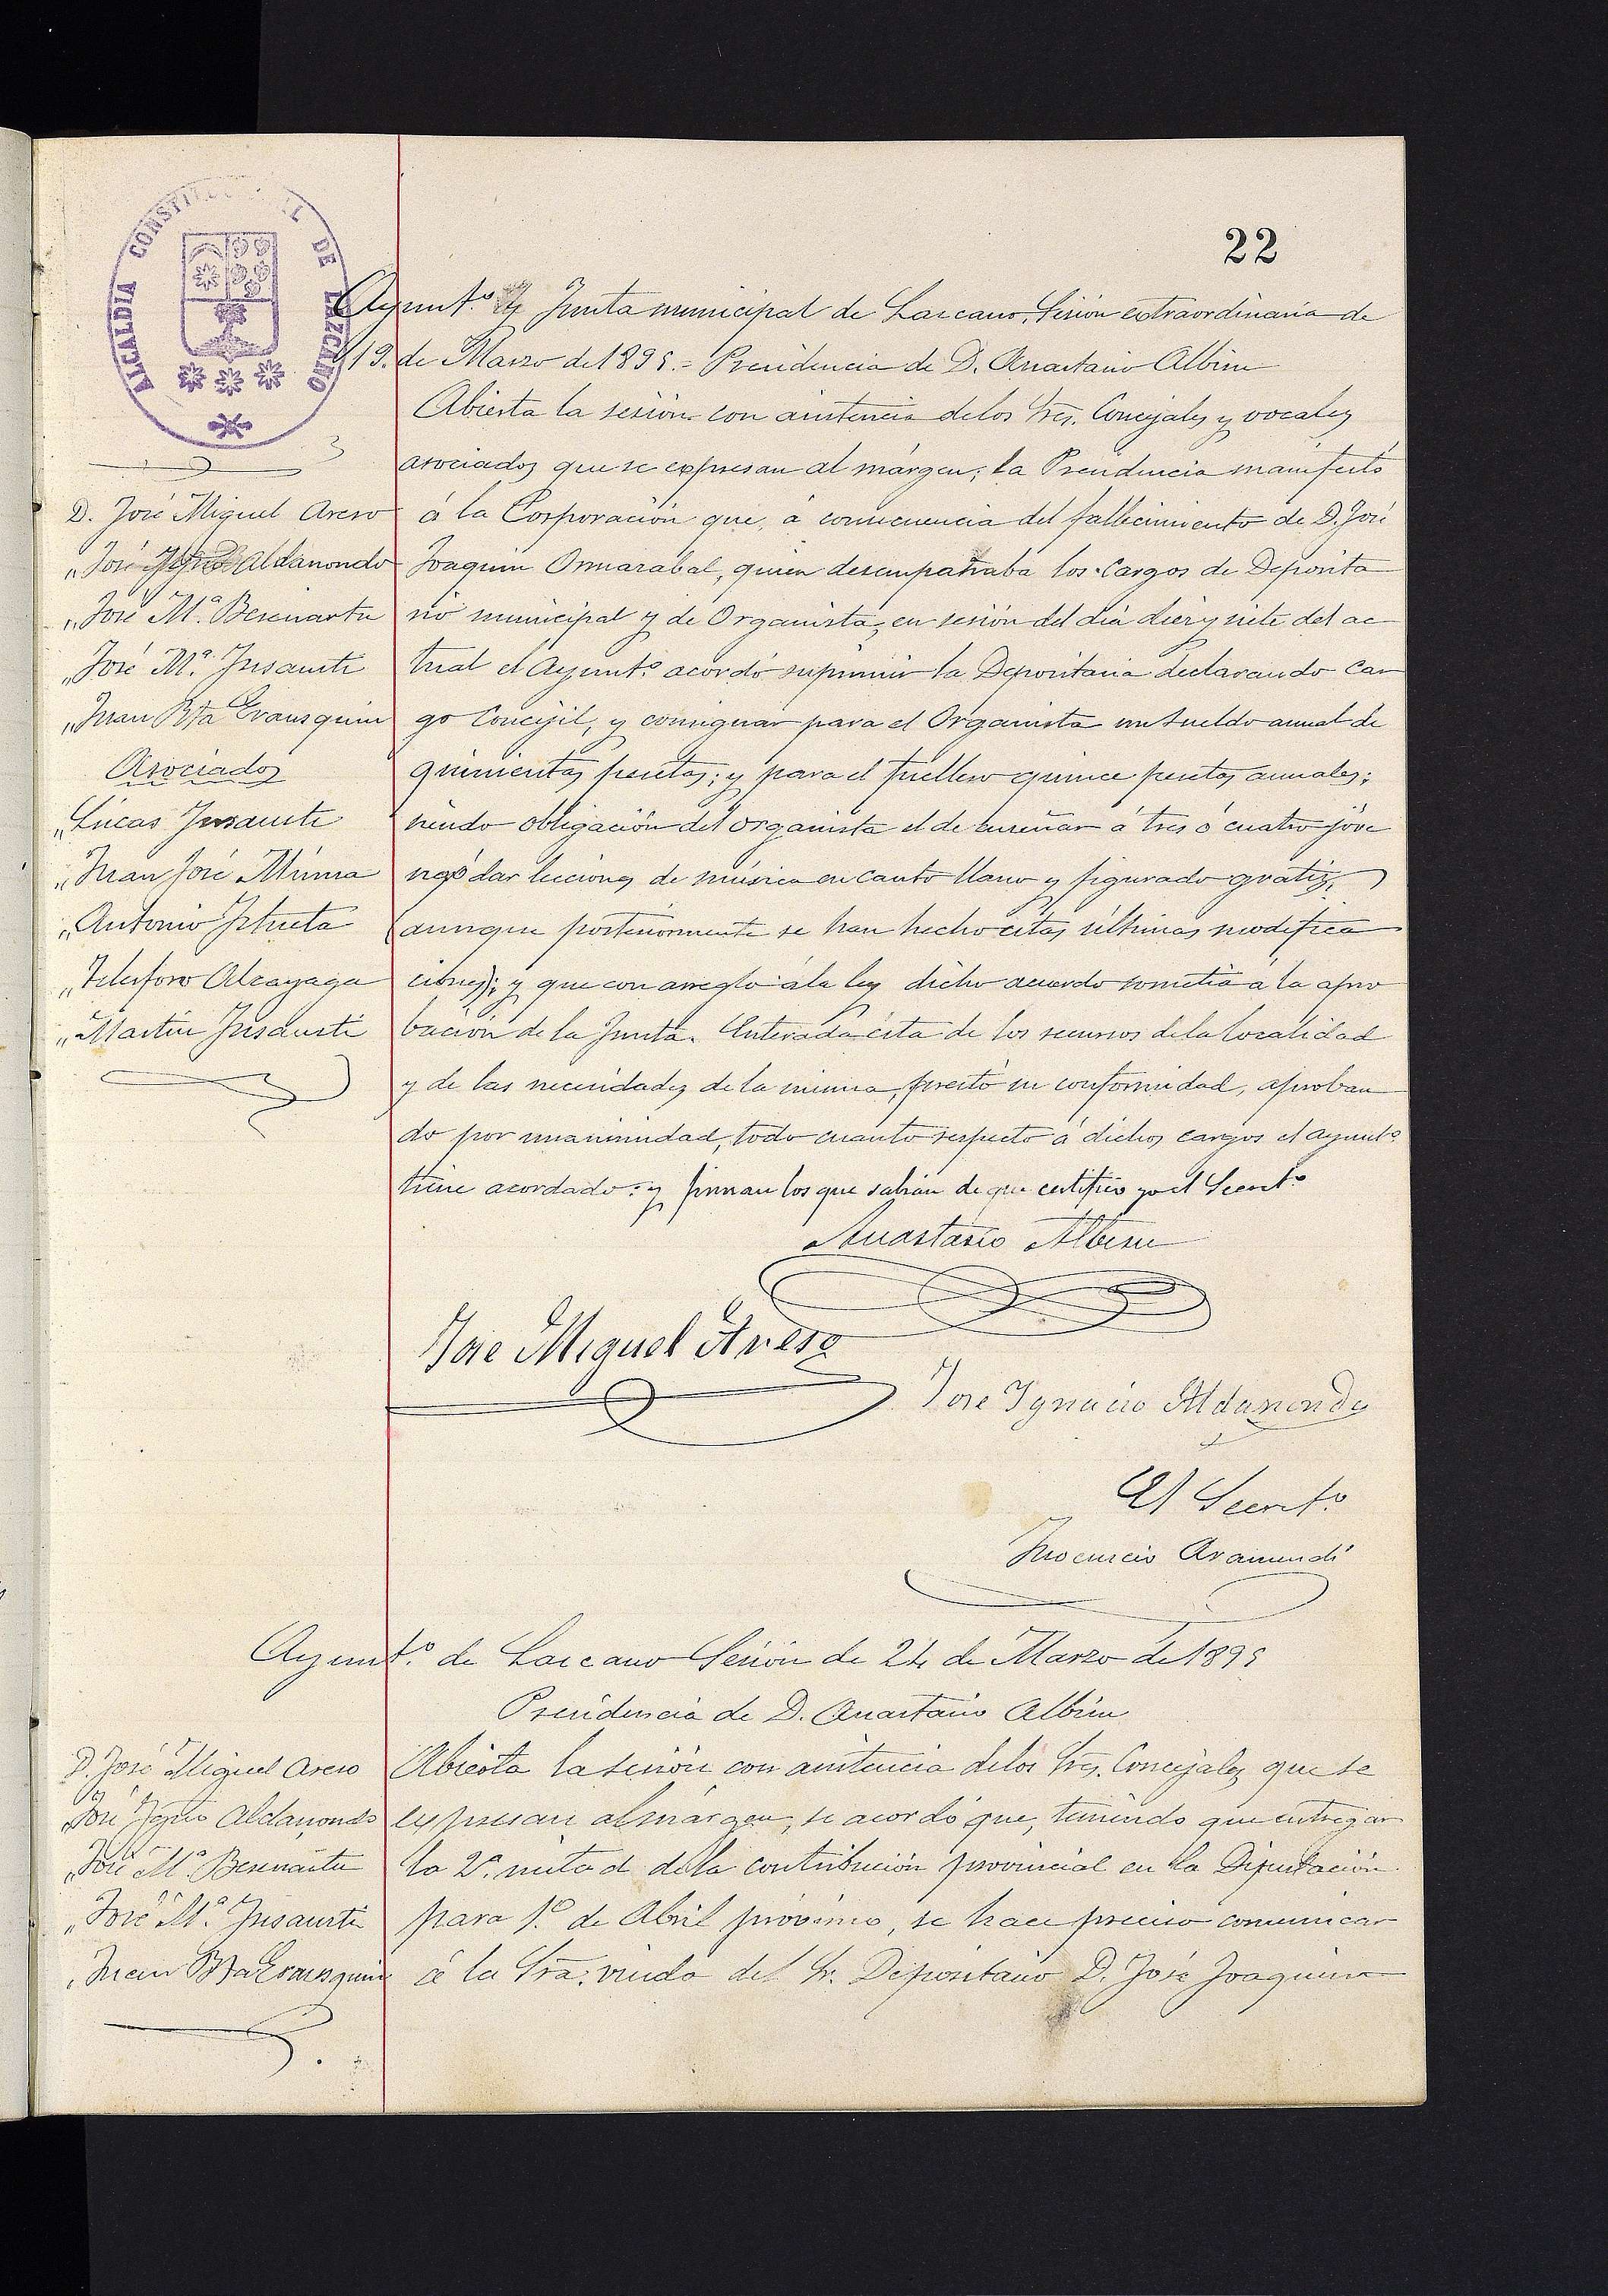 22
ALCALDIA CONSTITUCIONAL DE LAZCANO
Ayunt.º y Junta municipal de Lazcano, Sesión extraordinaria de
19. de Marzo de 1895.= Presidencia de D. Anastasio Albisu
Abierta la sesión con asistencia de los Sres. Concejales y vocales
asociados que se expresan al márgen; la Presidencia manifestó
á la Corporación que, á consecuencia del fallecimiento de D. José
Joaquin Ormazabal, quien desempañaba los cargos de Deposita
rio municipal y de Organista, en sesión del dia diez y siete del ac
tual el Ayunt.º acordó suprimir la Depositaria declarando car
go Concejil, y consignar para el Organista un sueldo anual de
quinientas pesetas; y para el fuellero quince pesetas anuales;
siendo obligación del organista el de enseñar á tres ó cuatro jóve
nes ó dar lecciones de música en canto llano y figurado gratis,
(aunque posteriormente se han hecho estas últimas modifica
ciones); y que con arreglo á la ley dicho acuerdo sometia á la apro
bación de la Junta. Enterada ésta de los recursos de la localidad
y de las necesidades de la misma, prestó su conformidad, aproban
do por unanimidad, todo cuanto respecto á dichos cargos el Ayunt.º
tiene acordado: y firman los que sabian de que certifico yo el Secret.º
D. José Miguel Areso
" José Ign.º Aldanondo
" José M.ª Beracoartu
" José M.ª Insausti
" Juan Bta Erausquin
Asociados
" Lúcas Insausti
" Juan José Múnua
" Antonio Iztueta
" Telesforo Alcayaga
" Martin Insausti
Anastasio Albisu
Jose Miguel Areso
Jose Ygnacio Aldanondo
El Secret.º
Inocencio Aramendi
Ayunt.º de Lazcano Sesión de 24 de Marzo de 1895
Presidencia de D. Anastasio Albisu
Abierta la sesión con asistencia de los Sres. Concejales que se
expresan al márgen, se acordó que, teniendo que entregar
la 2.ª mitad de la contribución provincial en la Diputación
para 1.º de Abril próximo, se hace preciso comunicar
á la Sra. viuda del Sr. Depositario D. José Joaquin
D. José Miguel Areso
" José Ign.º Aldanondo
" José M.ª Beracoartu
" José M.ª Insausti
" Juan Bta Erausquin